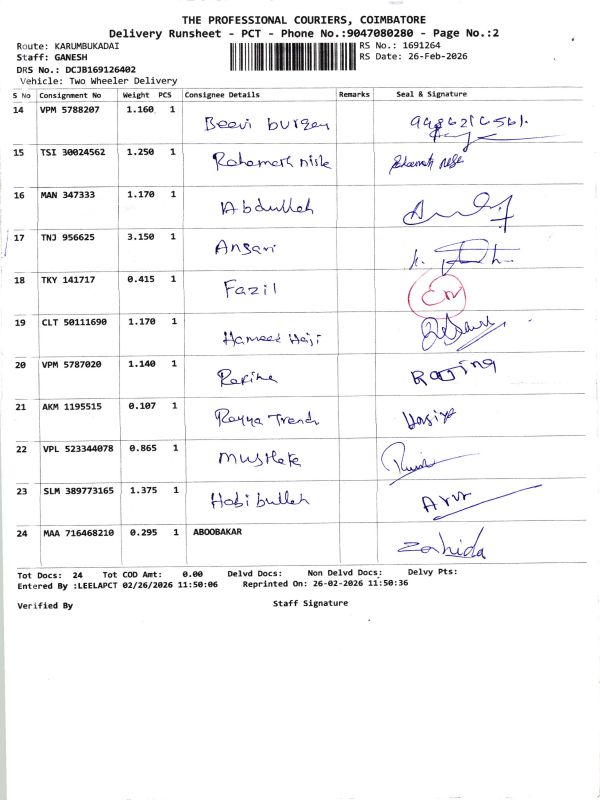 THE PROFESSIONAL COURIERS, COIMBATORE
Delivery Runsheet - PCT - Phone No.:9047080280 - Page No.:2
Route: KARUMBUKADAI RS No.: 1691264
Staff: GANESH RS Date: 26-Feb-2026
DRS No.: DCJB169126402
Vehicle: Two Wheeler Delivery
S No Consignment No Weight PCS Consignee Details Remarks Seal & Signature
14 VPM 5788207 1.160 1 Beevi burgan
15 TSI 30024562 1.250 1 Rahamath nisha
16 MAN 347333 1.170 1 Abdullah
17 TNJ 956625 3.150 1 Ansari
18 TKY 141717 0.415 1 Fazil
19 CLT 50111690 1.170 1 Hameed Haji
20 VPM 5787020 1.140 1
21 AKM 1195515 0.107 1 Rayya Trend
22 VPL 523344078 0.865 1 Mustafa
23 SLM 389773165 1.375 1 Habibullah
24 MAA 716468210 0.295 1 ABOOBAKAR Zahida
Tot Docs: 24 Tot COD Amt: 0.00 Delvd Docs: Non Delvd Docs: Delvy Pts:
Entered By :LEELAPCT 02/26/2026 11:50:06 Reprinted On: 26-02-2026 11:50:36
Verified By Staff Signature